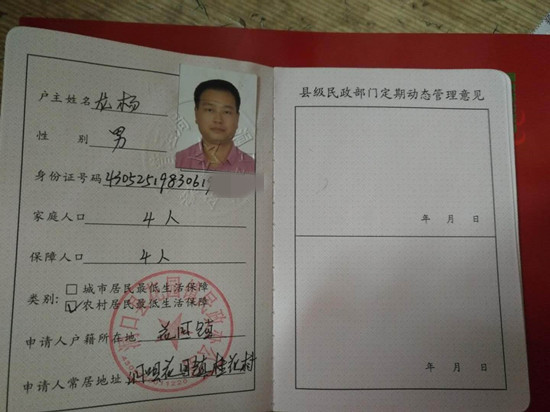 户主姓名 龙杨
性 别 男
身份证号码 4305251983061
家庭人口 4人
保障人口 4人
类别: □城市居民最低生活保障
☑农村居民最低生活保障
申请人户籍所在地 花园镇
申请人常居地址 洞口花园镇桂花村
县级民政部门定期动态管理意见
年 月 日
年 月 日